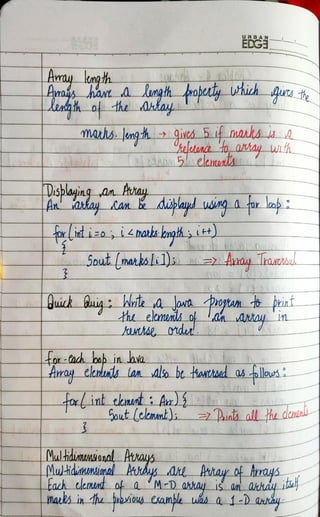 URBAN
EDGE
Array length
Arrays have a length property which gives the
length of the array.
marks.length → gives 5 if marks is a
reference to array with
5 elements
Displaying an Array
An array can be displayed using a for loop :
for (int i=0 ; i < marks length ; i++)
{
Sout (marks [i]); => Array Traversal
}
Quick Quiz : Write a Java program to print
the elements of an array in
reverse order.
for-each loop in Java
Array elements can also be traversed as follows :
for ( int element : Arr) {
Sout (element); => Prints all the elements
}
Multidimensional Arrays
Multidimensional Arrays are Array of Arrays.
Each element of a M-D array is an array itself
marks in the previous example was a 1-D array.